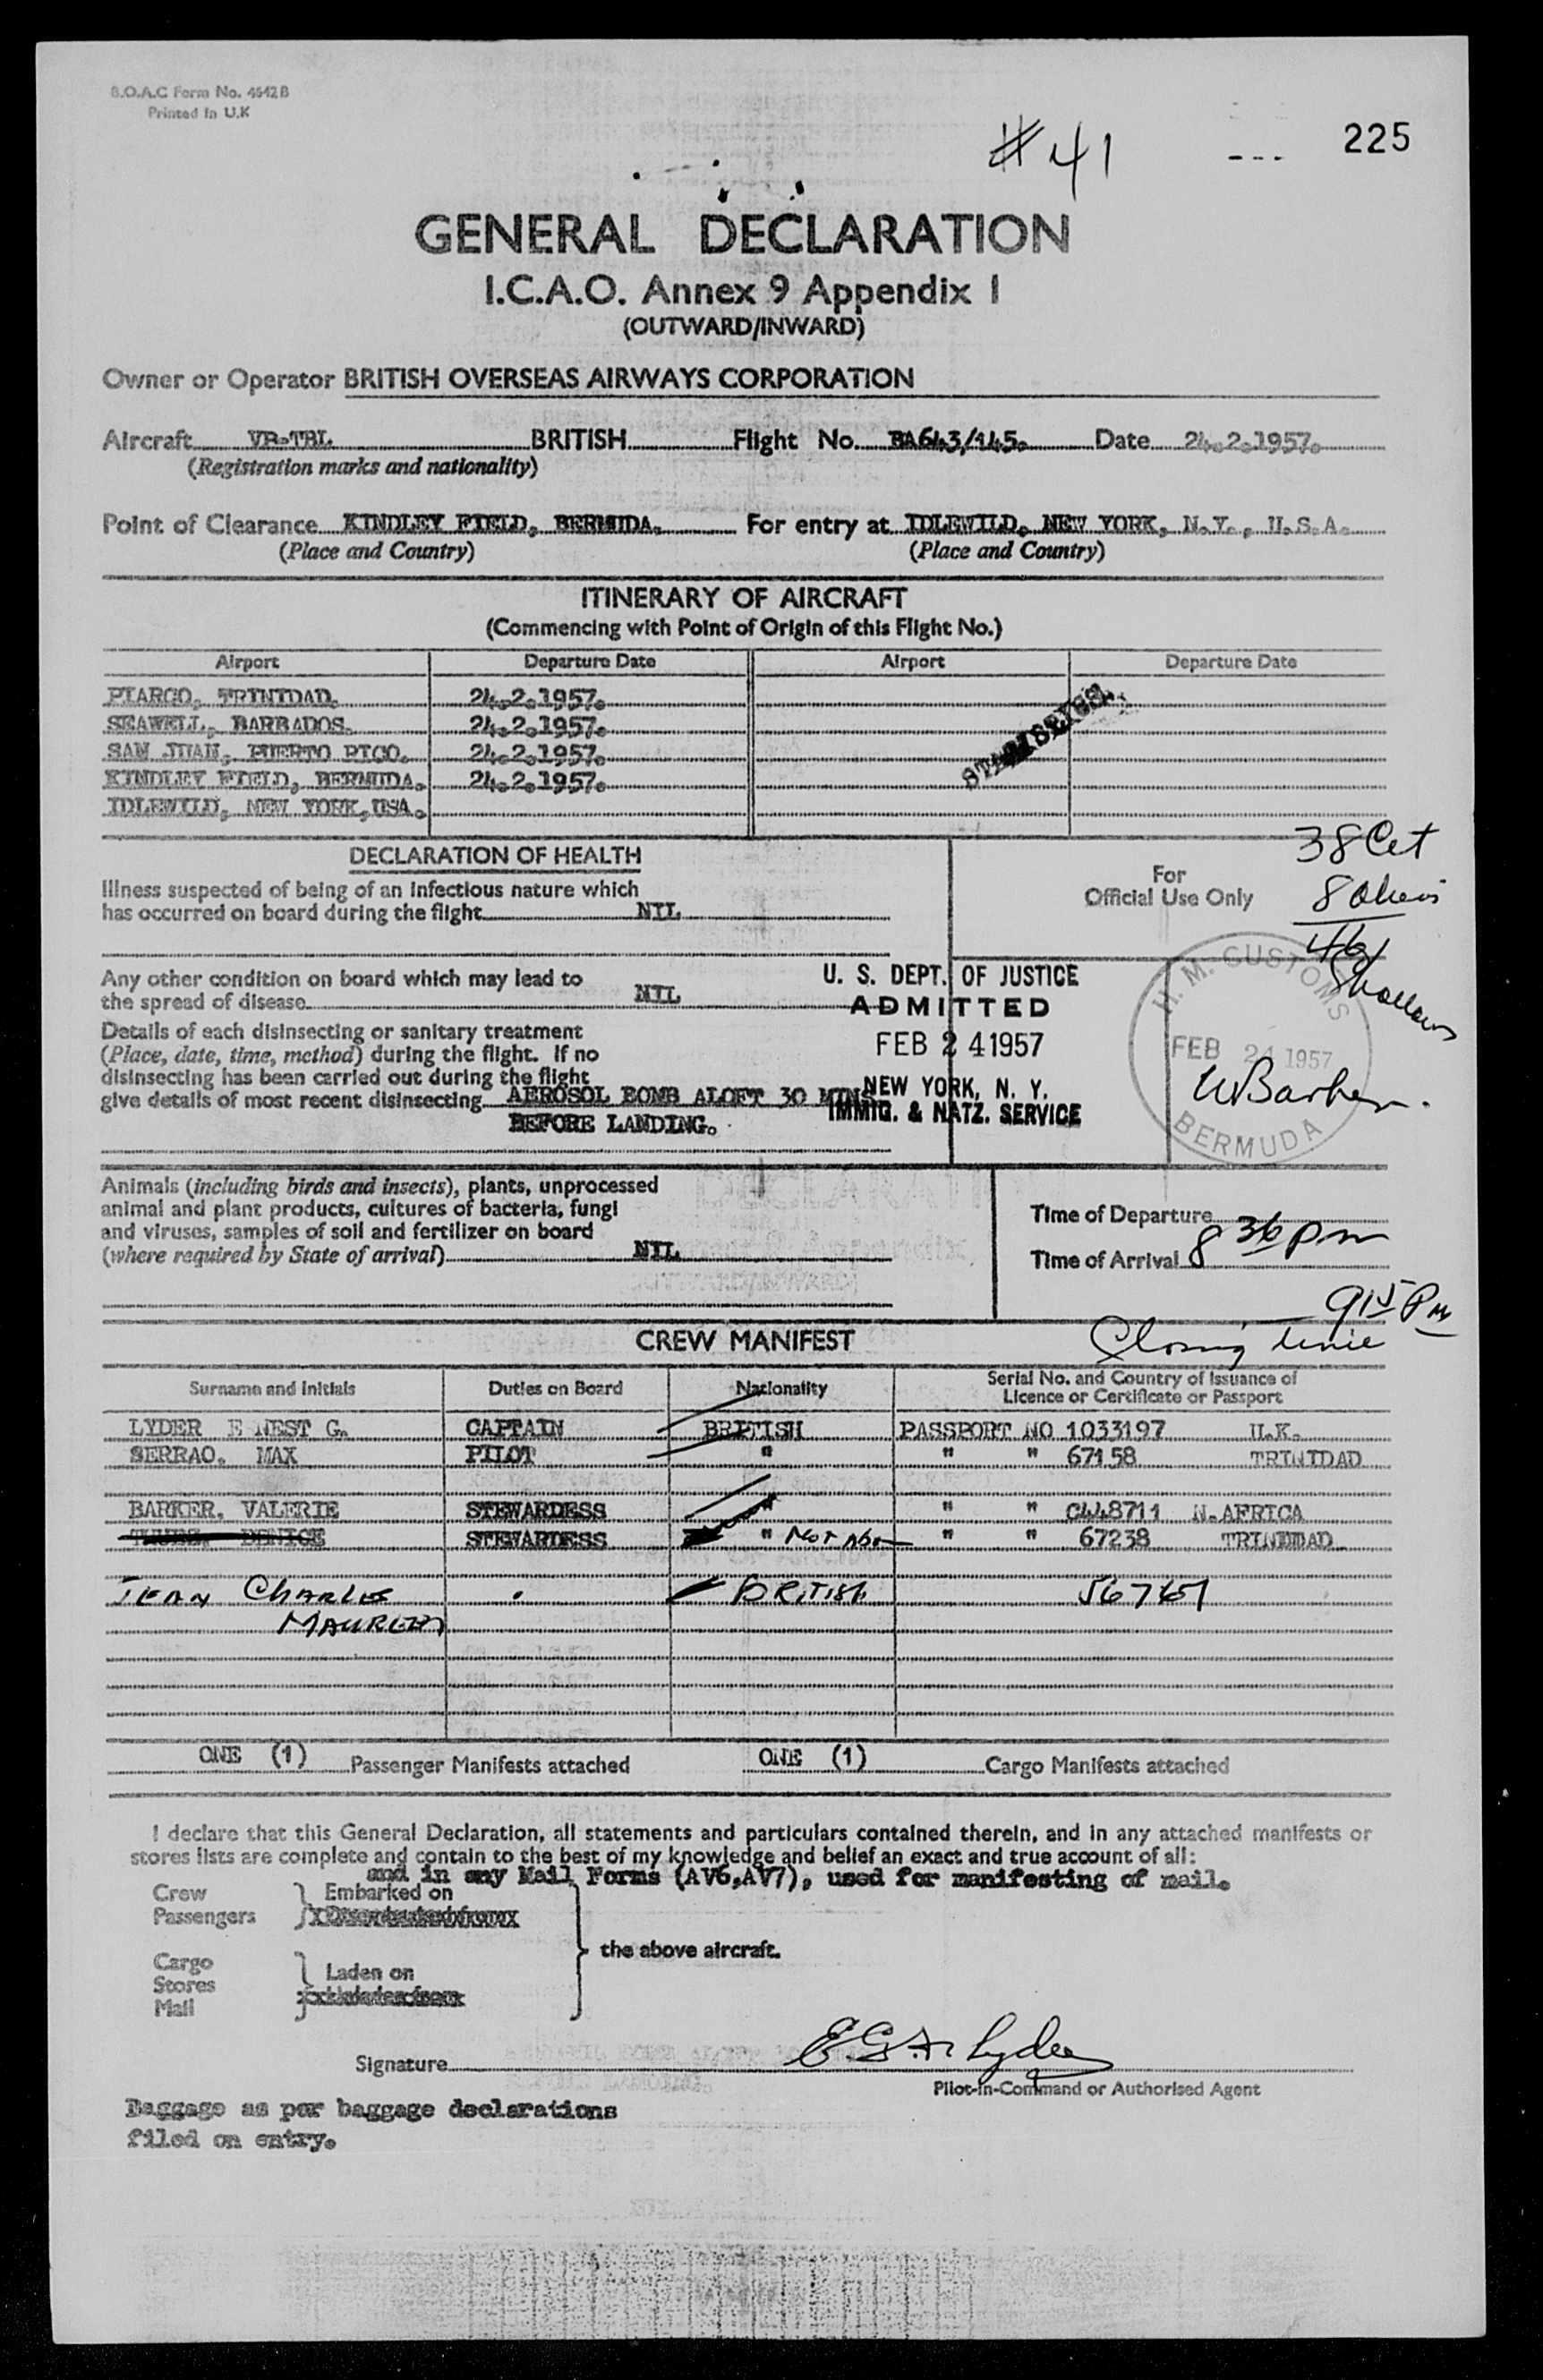 B.O.A.C Form No. 4642B
Printed in U.K
#41
225
GENERAL DECLARATION
I.C.A.O. Annex 9 Appendix I
(OUTWARD/INWARD)
Owner or Operator BRITISH OVERSEAS AIRWAYS CORPORATION
Aircraft VR-TBL BRITISH Flight No. BA643/145. Date 24.2.1957.
(Registration marks and nationality)
Point of Clearance KINDLEY FIELD, BERMUDA. For entry at IDLEWILD, NEW YORK, N.Y., U.S.A.
(Place and Country) (Place and Country)
ITINERARY OF AIRCRAFT
(Commencing with Point of Origin of this Flight No.)
Airport Departure Date Airport Departure Date
PIARCO, TRINIDAD. 24.2.1957.
SEAWELL, BARBADOS. 24.2.1957.
SAN JUAN, PUERTO RICO. 24.2.1957.
KINDLEY FIELD, BERMUDA. 24.2.1957.
IDLEWILD, NEW YORK, USA.
STATISTICS
DECLARATION OF HEALTH
Illness suspected of being of an infectious nature which
has occurred on board during the flight NIL
For
Official Use Only
38 Cet
8
46
Any other condition on board which may lead to
the spread of disease NIL
Details of each disinsecting or sanitary treatment
(Place, date, time, method) during the flight. If no
disinsecting has been carried out during the flight
give details of most recent disinsecting AEROSOL BOMB ALOFT 30 MINS
BEFORE LANDING.
U. S. DEPT. OF JUSTICE
ADMITTED
FEB 24 1957
NEW YORK, N. Y.
IMMIG. & NATZ. SERVICE
H. M. CUSTOMS
FEB 24 1957
WBarker.
BERMUDA
Animals (including birds and insects), plants, unprocessed
animal and plant products, cultures of bacteria, fungi
and viruses, samples of soil and fertilizer on board
(where required by State of arrival) NIL
Time of Departure
Time of Arrival 8 36 pm
915 Pm
Closing time
CREW MANIFEST
Surname and Initials Duties on Board Nationality Serial No. and Country of Issuance of
Licence or Certificate or Passport
LYDER E NEST G. CAPTAIN BRITISH PASSPORT NO 1033197 U.K.
SERRAO, MAX PILOT " " " 67158 TRINIDAD
BARKER, VALERIE STEWARDESS " " " C448711 N.AFRICA
DENICE STEWARDESS " Not " " 67238 TRINIDAD
JEAN CHARLES BRITISH 56767
MAUREEN
ONE (1) Passenger Manifests attached ONE (1) Cargo Manifests attached
I declare that this General Declaration, all statements and particulars contained therein, and in any attached manifests or
stores lists are complete and contain to the best of my knowledge and belief an exact and true account of all:
and in any Mail Forms (AV6,AV7), used for manifesting of mail.
Crew Embarked on
Passengers
the above aircraft.
Cargo
Stores Laden on
Mail
Signature E.G.A. Lyder
Pilot-in-Command or Authorised Agent
Baggage as per baggage declarations
filed on entry.